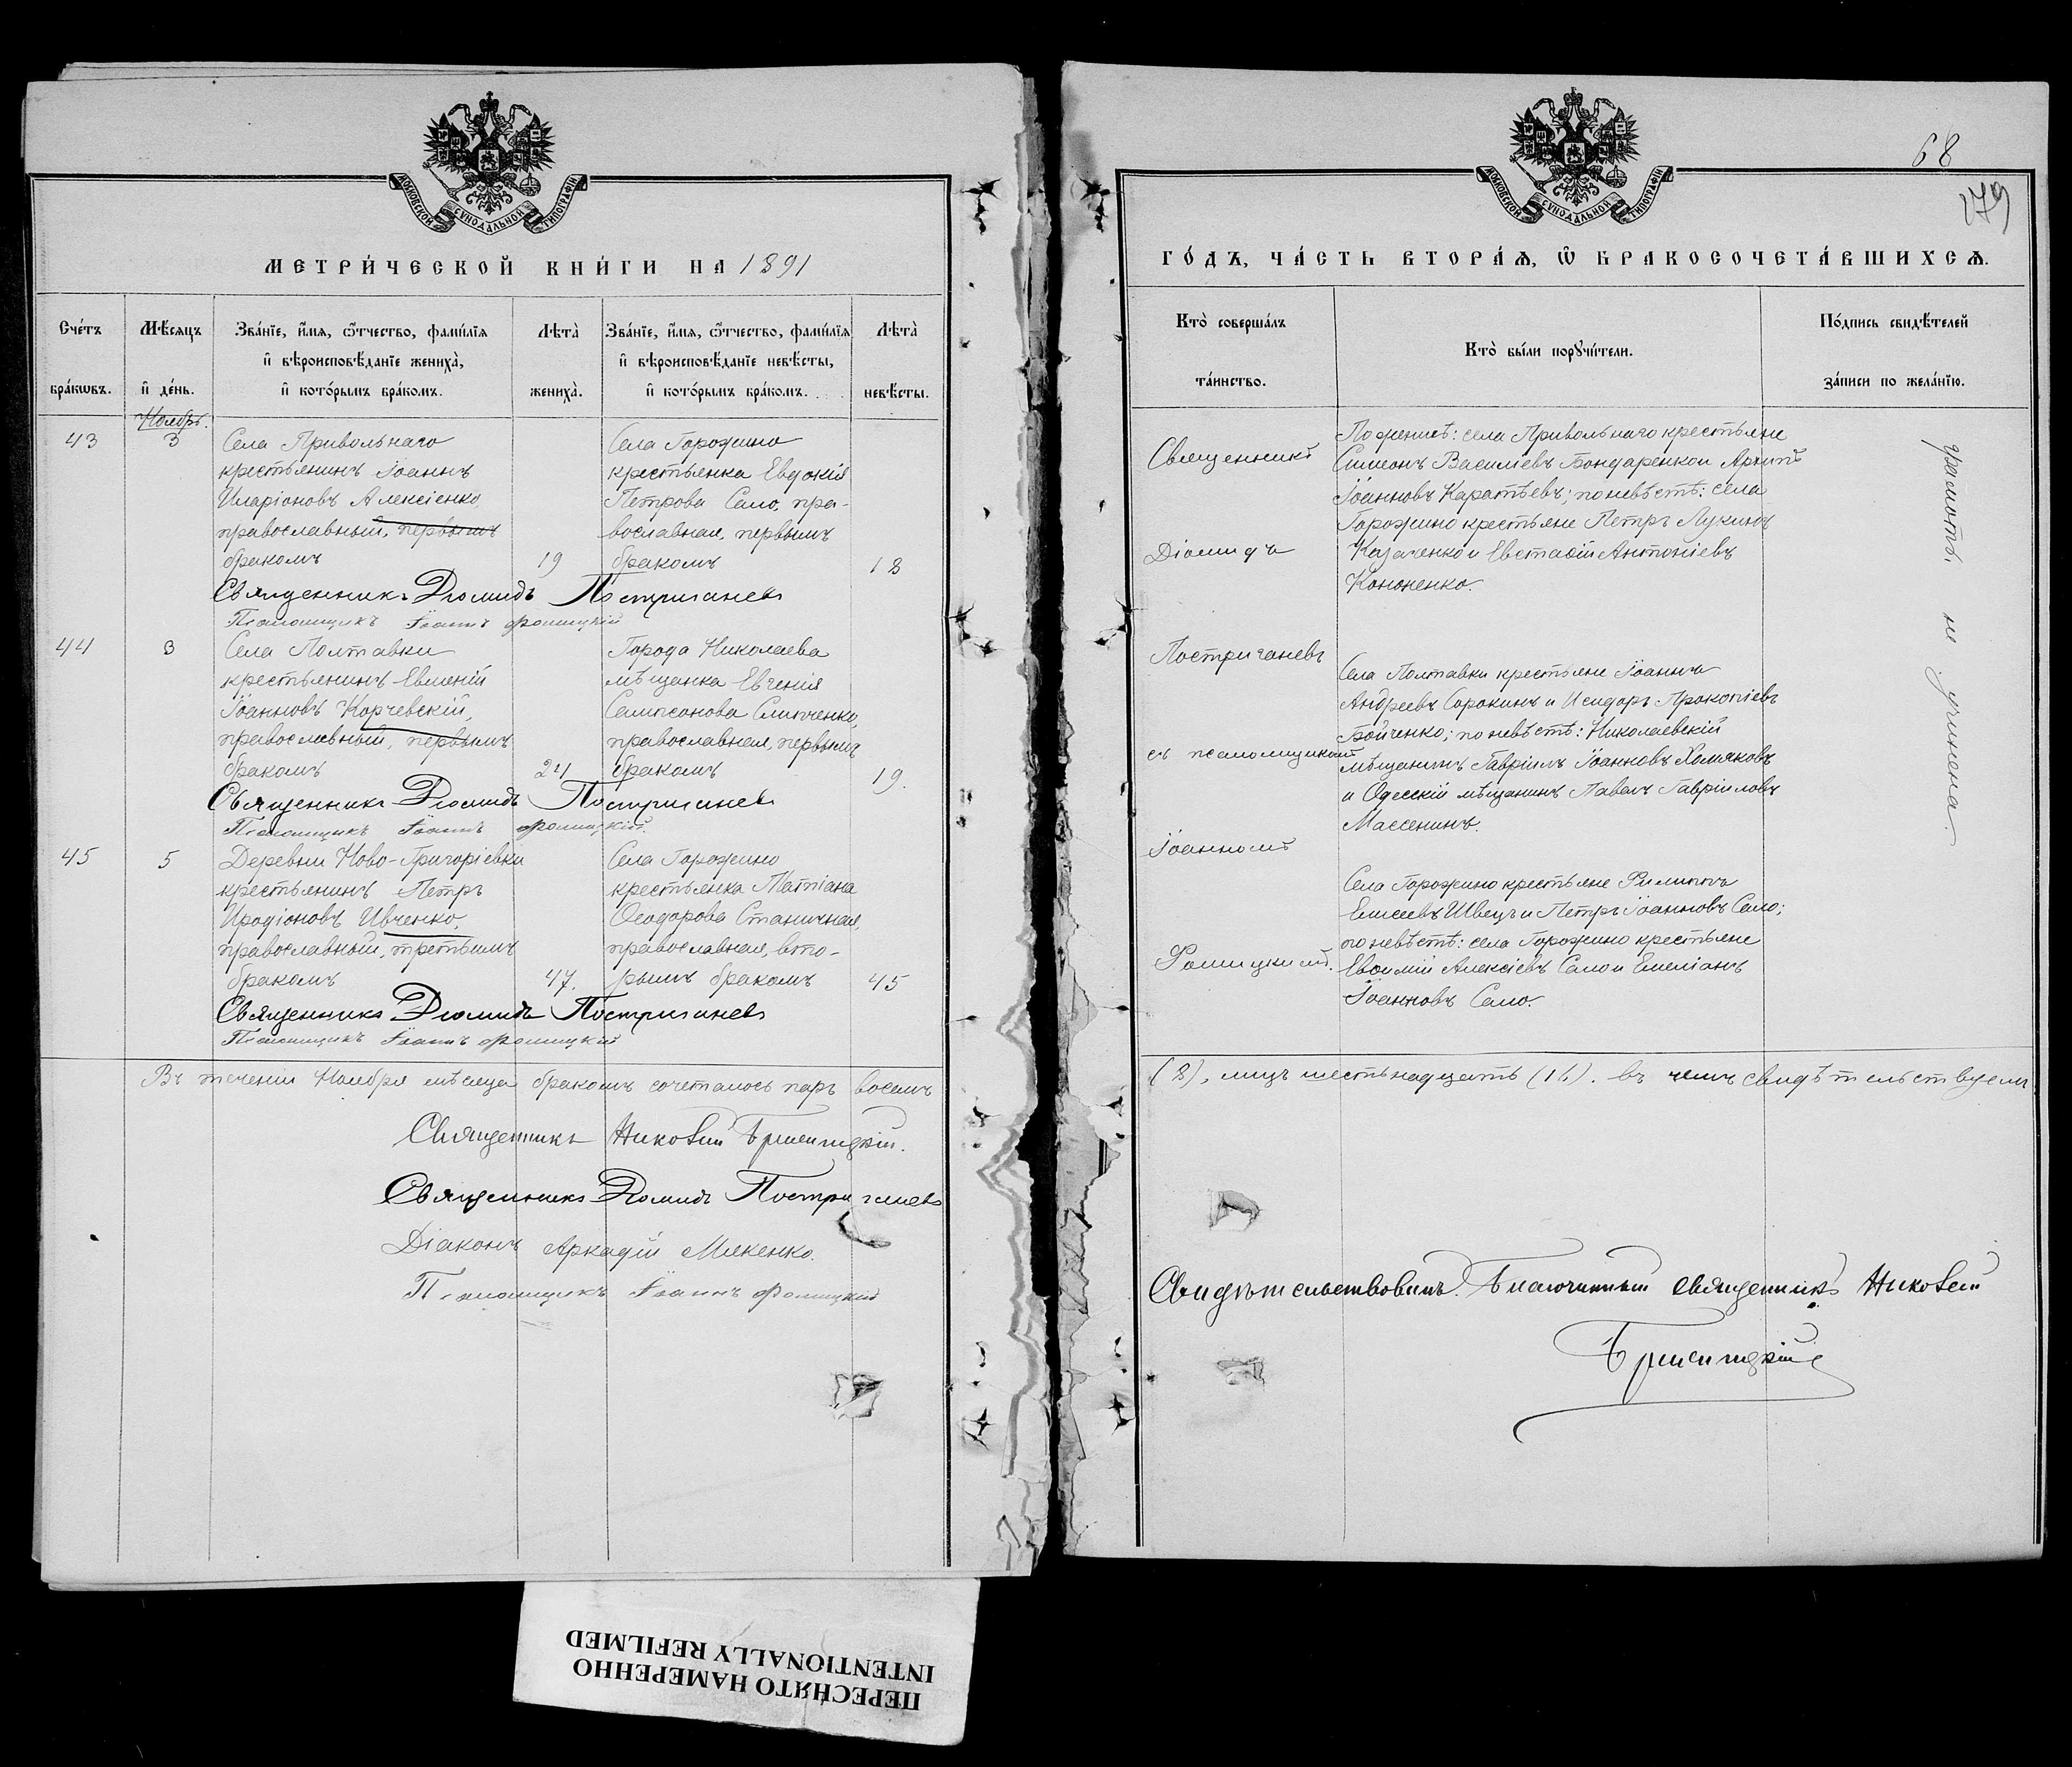 МОСКОВСКОЙ СѴНОДАЛЬНОЙ ТИПОГРАФІИ
МЕТРИ́ЧЕСКОЙ КНИ́ГИ НА 1891
Сче́тъ бра́ковъ.
Мѣ́сяцъ и҆ де́нь.
Зва́нїе, и҆́мѧ, ѻ҆́тчество, фами́лїѧ и҆ вѣроисповѣ́данїе жениха̀, и҆ кото́рымъ бра́комъ.
Лѣта̀ жениха̀.
Зва́нїе, и҆́мѧ, ѻ҆́тчество, фами́лїѧ и҆ вѣроисповѣ́данїе невѣ́сты, и҆ кото́рымъ бра́комъ.
Лѣта̀ невѣ́сты.
Ноябрь.
43 3
Села Привольнаго
крестьянинъ Іоаннъ
Иларіоновъ Алексіенко,
православный, первымъ
бракомъ 19
Села Горожино
крестьянка Евдокія
Петрова Сало, пра-
вославная, первымъ
бракомъ 18
Священникъ Діомидъ Постригачевъ
Псаломщикъ Іоаннъ Фомицкій
44 3
Села Полтавки
крестьянинъ Евменій
Іоанновъ Корчевскій,
православный, первымъ
бракомъ 24
Города Николаева
мѣщанка Евгенія
Сампсонова Слипченко,
православная, первымъ
бракомъ 19.
Священникъ Діомидъ Постригачевъ
Псаломщикъ Іоаннъ Фомицкій.
45 5
Деревни Ново-Григоріевки
крестьянинъ Петръ
Иродіоновъ Ивченко,
православный, третьимъ
бракомъ 47.
Села Горожино
крестьянка Татіана
Ѳеодорова Станичная,
православная, вто-
рымъ бракомъ 45
Священникъ Діомидъ Постригачевъ
Псаломщикъ Іоаннъ Фомицкій
Въ теченіи Ноября мѣсяца бракомъ сочеталось паръ восемъ
Священникъ
Священникъ Діомидъ Постригачевъ
Діаконъ Аркадій Мякенко.
Псаломщикъ Іоаннъ Фомицкій
68
279
МОСКОВСКОЙ СѴНОДАЛЬНОЙ ТИПОГРАФІИ
ГО́ДЪ, ЧА́СТЬ ВТОРА́Ѧ, Ѽ БРАКОСОЧЕТА́ВШИХСѦ.
Кто̀ соверша́лъ та́инство.
Кто̀ бы́ли порꙋчи́тели.
По́дпись свидѣ́телей за́писи по жела́нїю.
Священникъ
Діомидъ
Постригачевъ
съ псаломщикомъ
Іоанномъ
Фомицкимъ.
По женихѣ: села Привольнаго крестьяне
Симеонъ Василіевъ Бондаренко и Архипъ
Іоанновъ Каратѣевъ; по невѣстѣ: села
Горожино крестьяне Петръ Лукинъ
Казаченко и Евстафій Антоніевъ
Кононенко.
Села Полтавки крестьяне Іоаннъ
Андреевъ Сорокинъ и Исидоръ Прокопіевъ
Бойченко; по невѣстѣ: Николаевскій
мѣщанинъ Гавріилъ Іоанновъ Хомяковъ
и Одесскій мѣщанинъ Павелъ Гавріиловъ
Массенинъ.
Села Горожино крестьяне Филиппъ
Елисеевъ Швецъ и Петръ Іоанновъ Сало;
по невѣстѣ: села Горожино крестьяне
Евфимій Алексіевъ Сало и Емеліанъ
Іоанновъ Сало.
грамотѣ не учинена.
(8), лицъ шестьнадцать (16). въ чемъ свидѣтельствуемъ
Свидѣтельствовалъ. Благочинный священникъ
ПЕРЕСНЯТО НАМЕРЕННО
INTENTIONALLY REFILMED